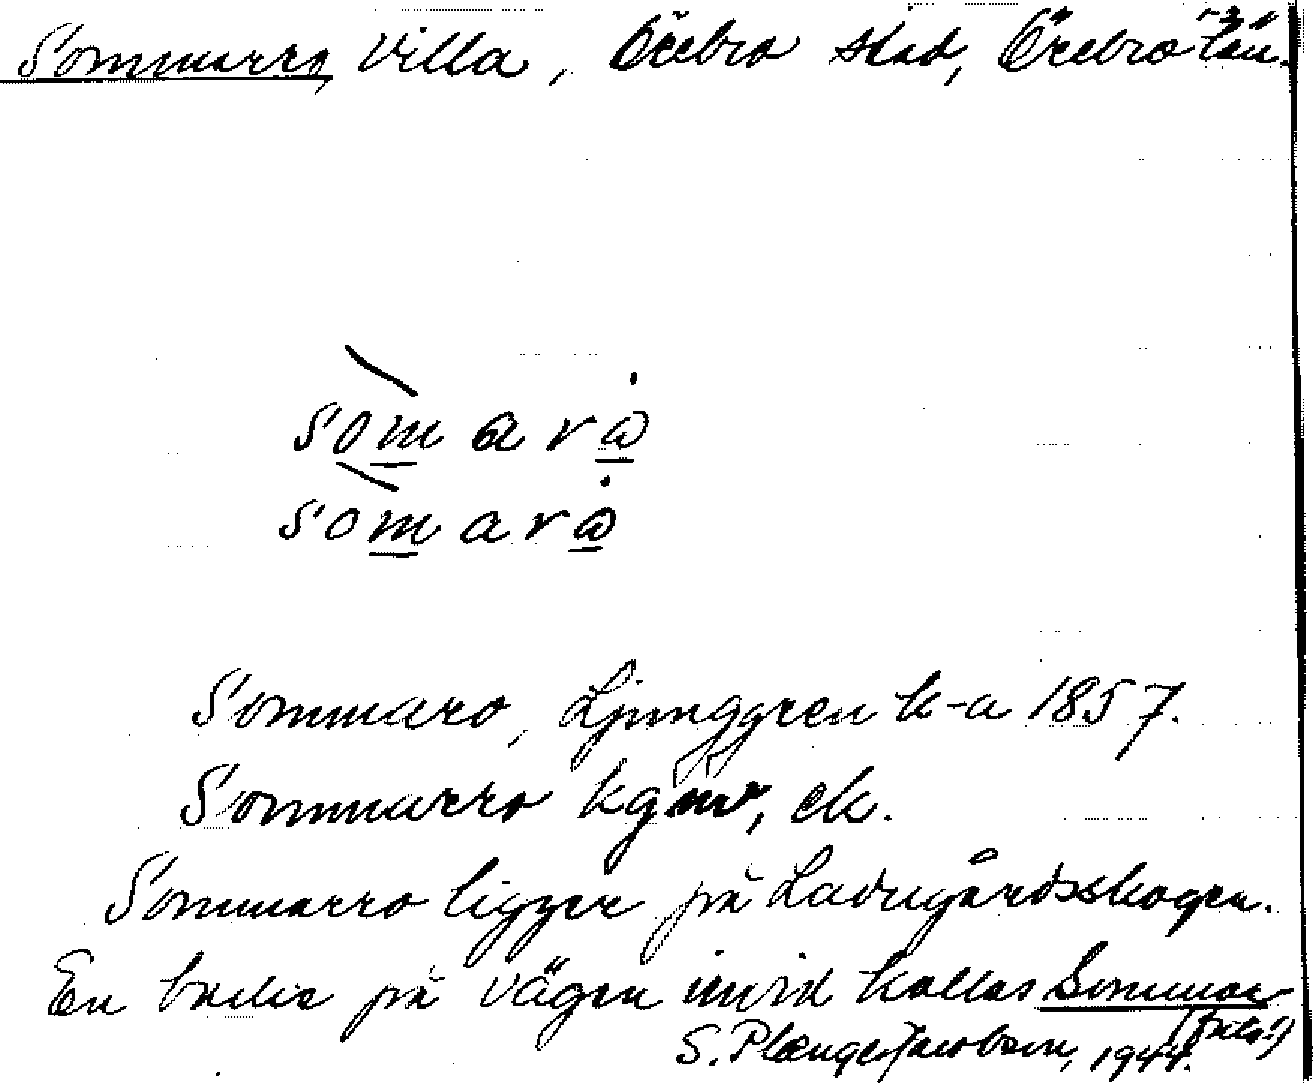 Sommarro, Villa, Örebro stad, Örebro län.
somarω̇
somarω̇
Sommaro, Ljunggren k-a 1857.
Sommarro kgmr, ek.
Sommarro ligger på Ladugårdsskogen.
En backe på vägen invid kallas Sommar
S. Plænge Jacobson, 1944.